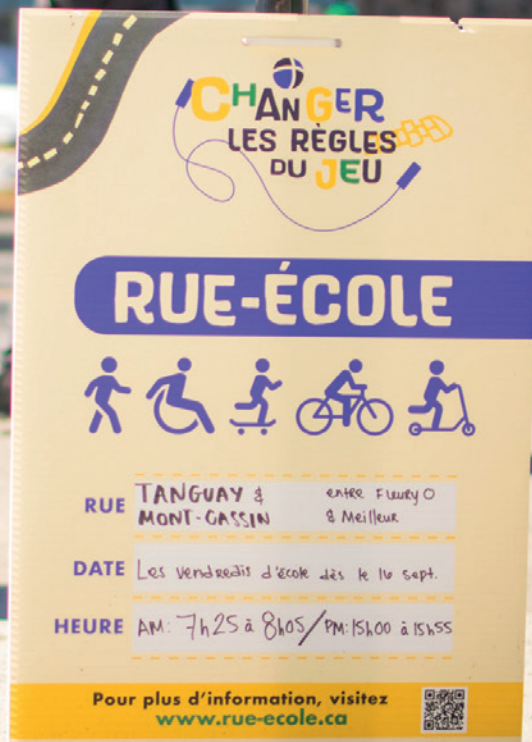 CHANGER
LES RÈGLES
DU JEU
RUE-ÉCOLE
RUE TANGUAY & entre Fleury O
MONT-CASSIN & Meilleur
DATE Les vendredis d'école dès le 16 sept.
HEURE AM: 7h25 à 8h05/PM: 15h00 à 15h55
Pour plus d'information, visitez
www.rue-ecole.ca